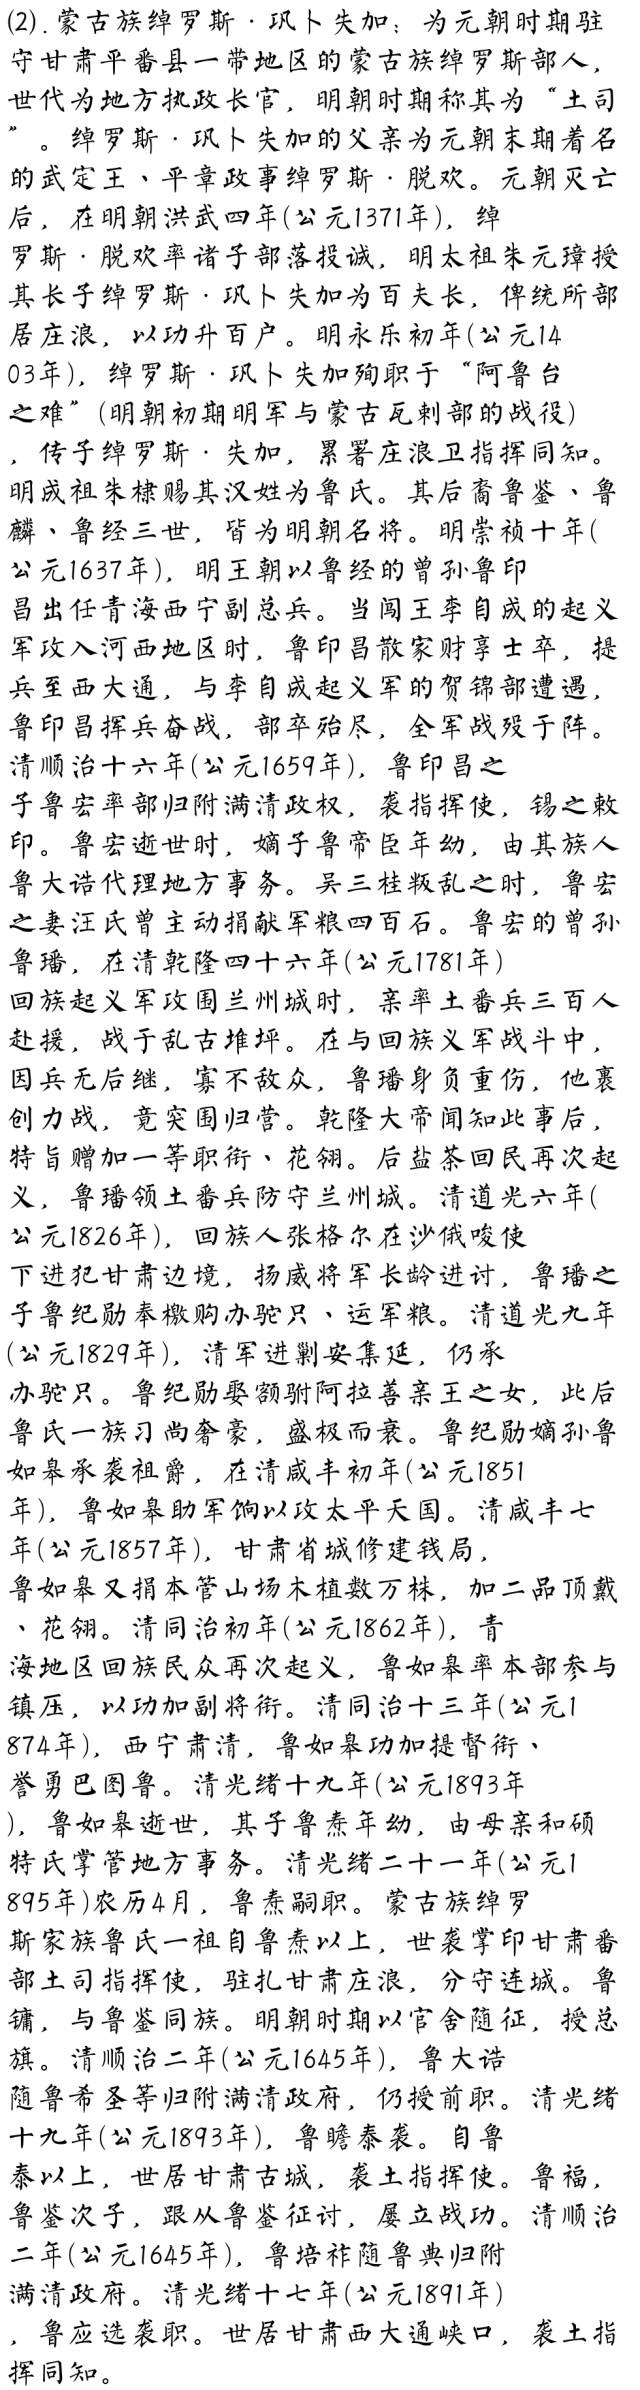 (2).蒙古族绰罗斯·巩卜失加：为元朝时期驻
守甘肃平番县一带地区的蒙古族绰罗斯部人，
世代为地方执政长官，明朝时期称其为“土司
”。绰罗斯·巩卜失加的父亲为元朝末期着名
的武定王、平章政事绰罗斯·脱欢。元朝灭亡
后，在明朝洪武四年(公元1371年)，绰
罗斯·脱欢率诸子部落投诚，明太祖朱元璋授
其长子绰罗斯·巩卜失加为百夫长，俾统所部
居庄浪，以功升百户。明永乐初年(公元14
03年)，绰罗斯·巩卜失加殉职于“阿鲁台
之难”(明朝初期明军与蒙古瓦剌部的战役)
，传子绰罗斯·失加，累署庄浪卫指挥同知。
明成祖朱棣赐其汉姓为鲁氏。其后裔鲁鉴、鲁
麟、鲁经三世，皆为明朝名将。明崇祯十年(
公元1637年)，明王朝以鲁经的曾孙鲁印
昌出任青海西宁副总兵。当闯王李自成的起义
军攻入河西地区时，鲁印昌散家财享士卒，提
兵至西大通，与李自成起义军的贺锦部遭遇，
鲁印昌挥兵奋战，部卒殆尽，全军战殁于阵。
清顺治十六年(公元1659年)，鲁印昌之
子鲁宏率部归附满清政权，袭指挥使，锡之敕
印。鲁宏逝世时，嫡子鲁帝臣年幼，由其族人
鲁大诰代理地方事务。吴三桂叛乱之时，鲁宏
之妻汪氏曾主动捐献军粮四百石。鲁宏的曾孙
鲁璠，在清乾隆四十六年(公元1781年)
回族起义军攻围兰州城时，亲率土番兵三百人
赴援，战于乱古堆坪。在与回族义军战斗中，
因兵无后继，寡不敌众，鲁璠身负重伤，他裹
创力战，竟突围归营。乾隆大帝闻知此事后，
特旨赠加一等职衔、花翎。后盐茶回民再次起
义，鲁璠领土番兵防守兰州城。清道光六年(
公元1826年)，回族人张格尔在沙俄唆使
下进犯甘肃边境，扬威将军长龄进讨，鲁璠之
子鲁纪勋奉檄购办驼只、运军粮。清道光九年
(公元1829年)，清军进剿安集延，仍承
办驼只。鲁纪勋娶额驸阿拉善亲王之女，此后
鲁氏一族习尚奢豪，盛极而衰。鲁纪勋嫡孙鲁
如皋承袭祖爵，在清咸丰初年(公元1851
年)，鲁如皋助军饷以攻太平天国。清咸丰七
年(公元1857年)，甘肃省城修建钱局，
鲁如皋又捐本管山场木植数万株，加二品顶戴
、花翎。清同治初年(公元1862年)，青
海地区回族民众再次起义，鲁如皋率本部参与
镇压，以功加副将衔。清同治十三年(公元1
874年)，西宁肃清，鲁如皋功加提督衔、
誉勇巴图鲁。清光绪十九年(公元1893年
)，鲁如皋逝世，其子鲁焘年幼，由母亲和硕
特氏掌管地方事务。清光绪二十一年(公元1
895年)农历4月，鲁焘嗣职。蒙古族绰罗
斯家族鲁氏一祖自鲁焘以上，世袭掌印甘肃番
部土司指挥使，驻扎甘肃庄浪，分守连城。鲁
镛，与鲁鉴同族。明朝时期以官舍随征，授总
旗。清顺治二年(公元1645年)，鲁大诰
随鲁希圣等归附满清政府，仍授前职。清光绪
十九年(公元1893年)，鲁瞻泰袭。自鲁
泰以上，世居甘肃古城，袭土指挥使。鲁福，
鲁鉴次子，跟从鲁鉴征讨，屡立战功。清顺治
二年(公元1645年)，鲁培祚随鲁典归附
满清政府。清光绪十七年(公元1891年)
，鲁应选袭职。世居甘肃西大通峡口，袭土指
挥同知。